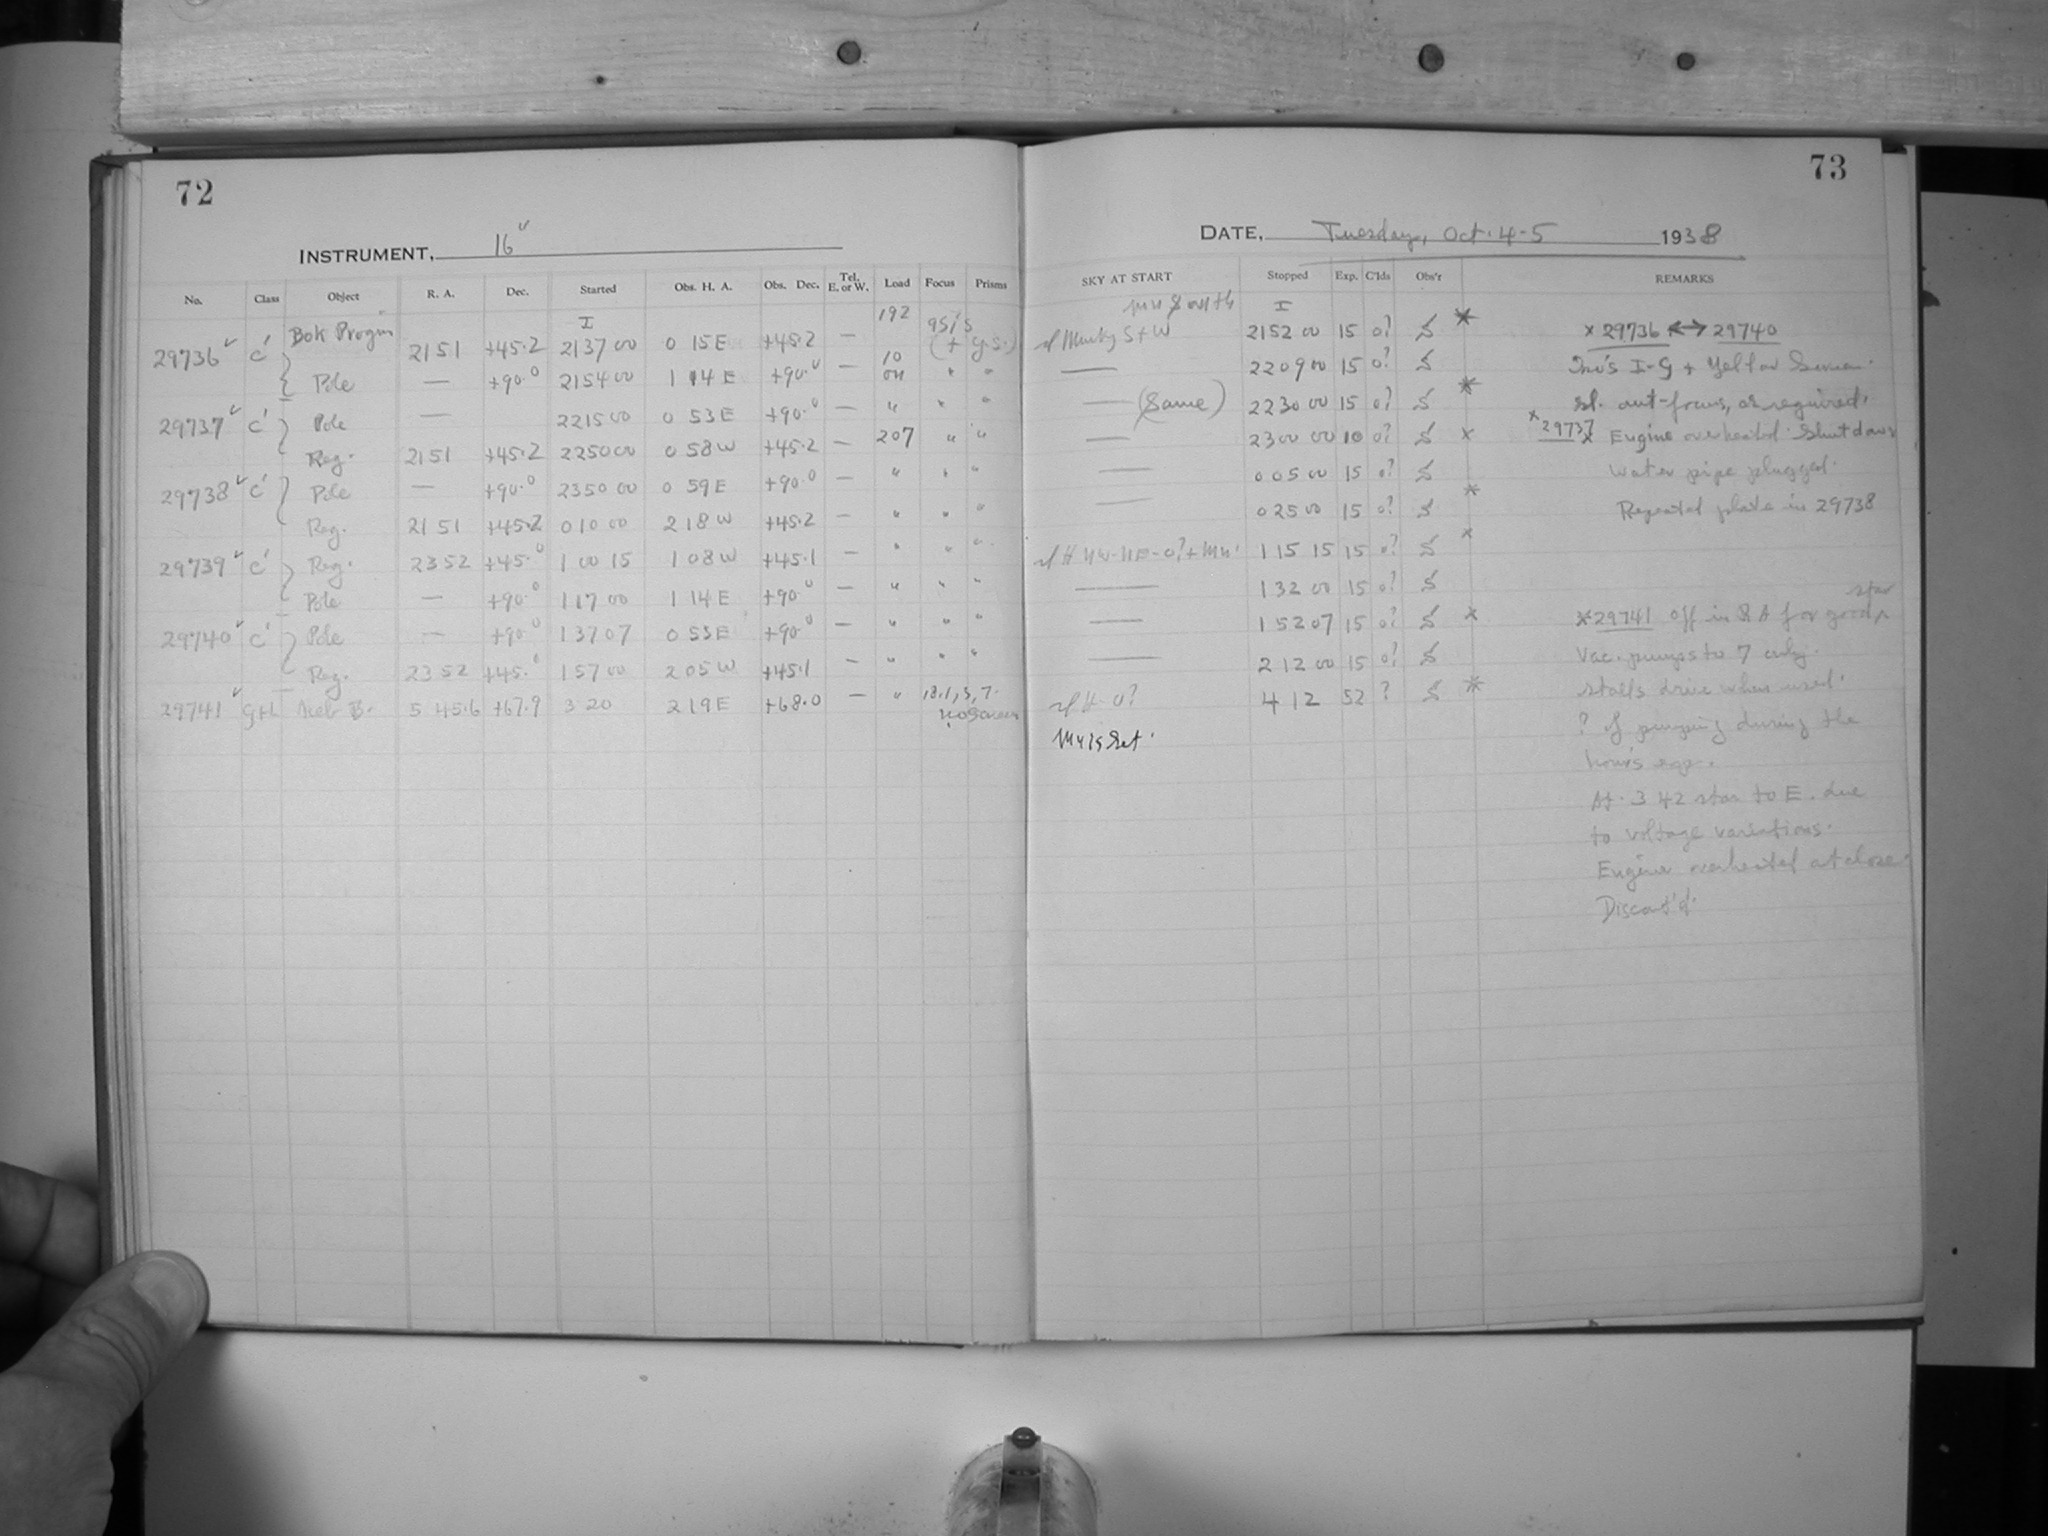 72
INSTRUMENT, 16"
No. Class Object R. A. Dec. Started Obs. H. A. Obs. Dec. Tel. E. or W. Load Focus Prisms
29736 C' Bok Progm 2151 +45.2 I 2137 00 0 15 E +45.2 — 192 95/5 (+ y.s.)
Pole — +90.0 2154 00 1 14 E +90.0 — 10 on " "
29737 C' Pole — 2215 00 0 53 E +90.0 — " " "
Reg. 2151 +45.2 2250 00 0 58 W +45.2 — 207 " "
29738 C' Pole — +90.0 2350 00 0 59 E +90.0 — " " "
Reg. 2151 +45.2 0 10 00 2 18 W +45.2 — " " "
29739 C' Reg. 2352 +45.0 1 00 15 1 08 W +45.1 — " " "
Pole — +90.0 1 17 00 1 14 E +90.0 — " " "
29740 C' Pole — +90.0 1 37 07 0 53 E +90.0 — " " "
Reg. 2352 +45.0 1 57 00 2 05 W +45.1 — " " "
29741 5 45.6 +67.9 3 20 2 19 E +68.0 — " 10.1,3,7. no screen
73
DATE, Tuesday, Oct. 4-5 1938
SKY AT START Stopped Exp. C'lds Obs'r REMARKS
mn South I
Murky S+W 2152 00 15 0? S * x 29736 ↔ 29740
— 2209 00 15 0? S I-G + Yellow Screen.
— (Same) 2230 00 15 0? S * sl. out-focus, as required.
— 2300 00 10 0? S x x 29737 x Engine overheated. Shut down
— 0 05 00 15 0? S Water pipe plugged.
— 0 25 00 15 0? S * Repeated plate in 29738
H NW-NE-0?+mn. 1 15 15 15 0? S x
— 1 32 00 15 0? S
— 1 52 07 15 0? S x x 29741 off in RA for good star
— 2 12 00 15 0? S Vac. pumps to 7 only.
H-0? 4 12 52 ? S * stalls drive when used.
Mn is set. ? of pumping during the
hour's exp.
At 3 42 star to E. due
to voltage variations.
Engine overheated at close.
Discont'd.